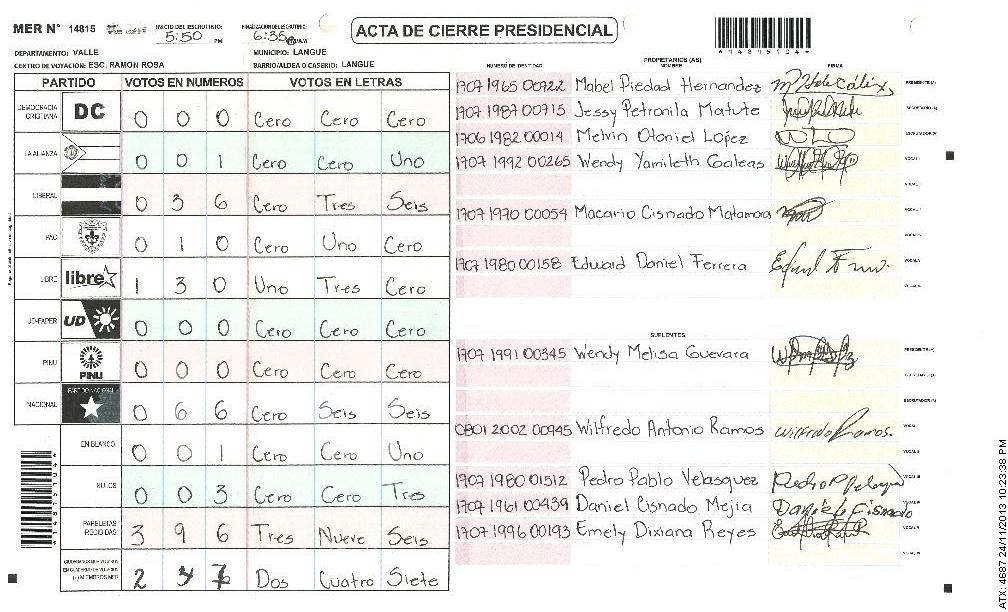 MER N° 14815
INICIO DEL ESCRUTINIO: 5:50 PM
FINALIZACION DEL ESCRUTINIO: 6:35 AM
ACTA DE CIERRE PRESIDENCIAL
*14815104*
DEPARTAMENTO: VALLE
MUNICIPIO: LANGUE
CENTRO DE VOTACION: ESC. RAMON ROSA
BARRIO/ALDEA O CASERIO: LANGUE
PARTIDO VOTOS EN NUMEROS VOTOS EN LETRAS
DEMOCRACIA CRISTIANA DC 0 0 0 Cero Cero Cero
LA ALIANZA 0 0 1 Cero Cero Uno
LIBERAL 0 3 6 Cero Tres Seis
PAC 0 1 0 Cero Uno Cero
LIBRE libre 1 3 0 Uno Tres Cero
UD-FAPER UD 0 0 0 Cero Cero Cero
PINU PINU 0 0 0 Cero Cero Cero
NACIONAL PARTIDO NACIONAL 0 6 6 Cero Seis Seis
EN BLANCO 0 0 1 Cero Cero Uno
NULOS 0 0 3 Cero Cero Tres
PAPELETAS RECIBIDAS 3 9 6 Tres Nueve Seis
CIUDADANOS QUE VOTARON EN CUADERNO DE VOTACION (+) MIEMBROS MER 2 4 7 Dos Cuatro Siete
PROPIETARIOS (AS)
NUMERO DE IDENTIDAD NOMBRE FIRMA
1707 1965 00722 Mabel Piedad Hernandez PRESIDENTE(A)
1707 1987 00715 Jessy Petronila Matute SECRETARIO(A)
1706 1982 00014 Melvin Otoniel Lopez ESCRUTADOR(A)
1707 1992 00265 Wendy Yamileth Galeas VOCAL I
1707 1970 00054 Macario Cisnado Matamoros
1707 1980 00158 Eduard Daniel Ferrera
SUPLENTES
1707 1991 00345 Wendy Melisa Guevara PRESIDENTE(A)
SECRETARIO(A)
ESCRUTADOR(A)
0801 2002 00945 Wilfredo Antonio Ramos Wilfredo Ramos.
1707 1980 01512 Pedro Pablo Velasquez
1707 1961 00439 Daniel Cisnado Mejia Daniel Cisnado
1707 1996 00193 Emely Dixiana Reyes
ATX: 4687 24/11/2013 10:23:38 PM